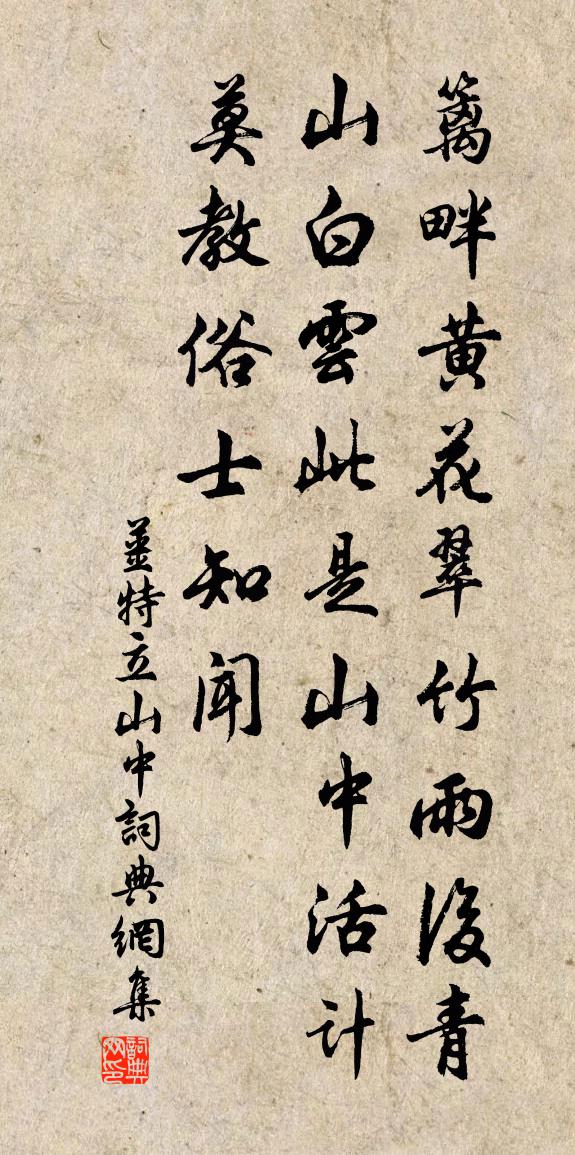 篱畔黄花翠竹雨後青
山白雲此是山中活計
莫教俗士知聞
薑特立山中詞典網集
詞典
网印